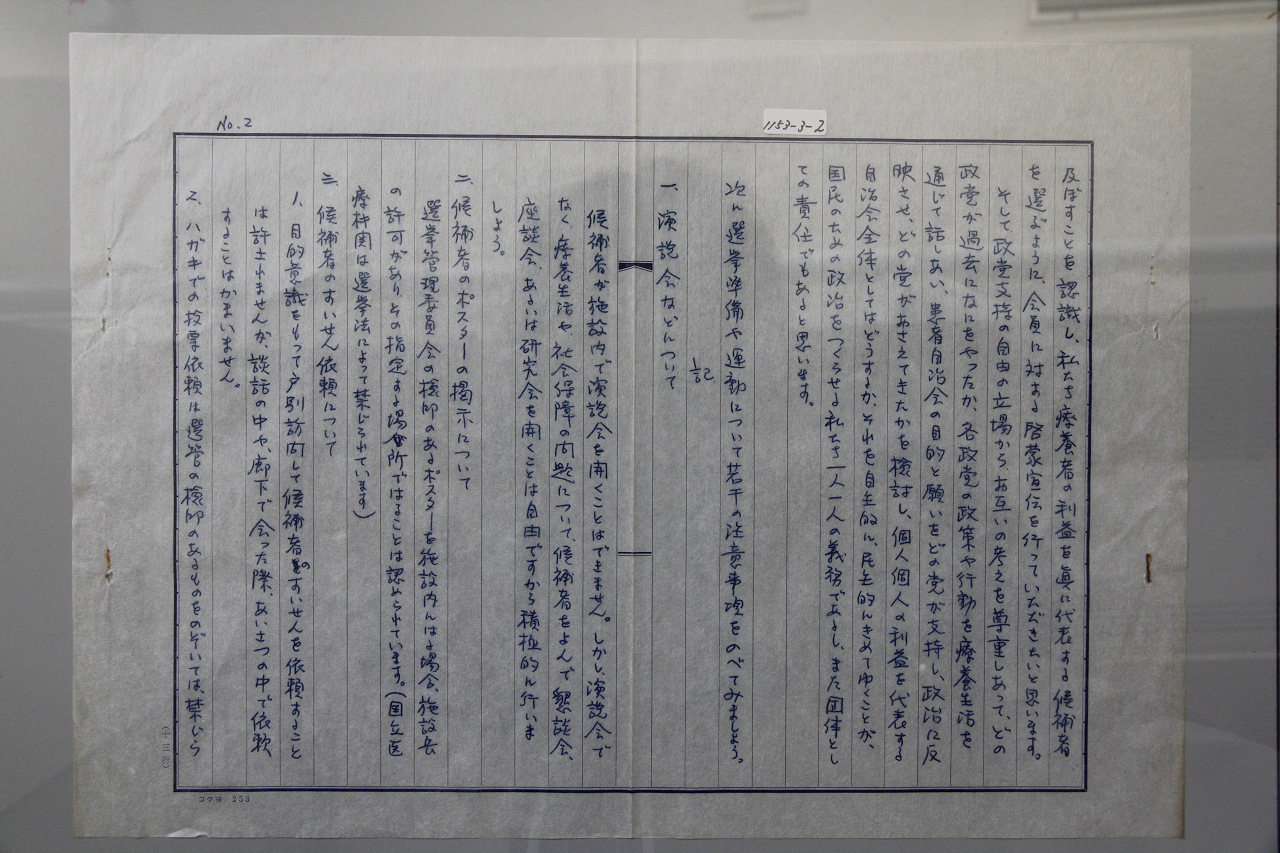 1153-3-2
No.2
及ぼすことを認識し、私たち療養者の利益を真に代表する候補者
を選ぶように、会員に対する啓蒙宣伝を行っていただきたいと思います。
そして、政党支持の自由の立場から、お互いの考えを尊重しあって、どの
政党が過去になにをやったか、各政党の政策や行動を療養生活を
通じて話しあい、患者自治会の目的と願いをどの党が支持し、政治に反
映させ、どの党がおさえてきたかを検討し、個人個人の利益を代表する
自治会全体としてはどうするか、それを自主的に、民主的にきめてゆくことが、
国民のための政治をつくらせる私たち一人一人の義務であるし、また団体とし
ての責任でもあると思います。
次に選挙準備や運動について若干の注意事項をのべてみましょう。
記
一、演説会などについて
候補者が施設内で演説会を開くことはできません。しかし、演説会で
なく、療養生活や、社会保障の問題について、候補者をよんで懇談会、
座談会、あるいは研究会を開くことは自由ですから積極的に行いま
しょう。
二、候補者のポスターの掲示について
選挙管理委員会の検印のあるポスターを施設内にはる場合、施設長
の許可があり、その指定する場所ではることは認められています。(国立医
療機関は選挙法によって禁じられています)
三、候補者のすいせん依頼について
1. 目的意識をもって戸別訪問して候補者のすいせんを依頼すること
は許されませんが、談話の中や、廊下で会った際、あいさつの中で依頼
することはかまいません。
2. ハガキでの投票依頼は選管の検印のあるものをのぞいては、禁じら
(十三行)
コクヨ 253